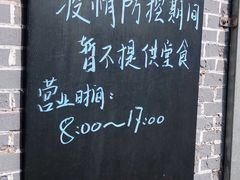 疫情防控期间
暂不提供堂食
营业时间：
8:00～17:00